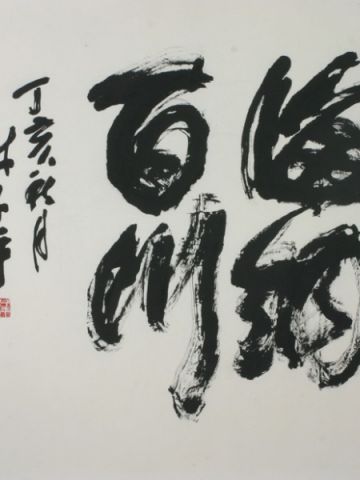 海納
百川
丁亥秋月